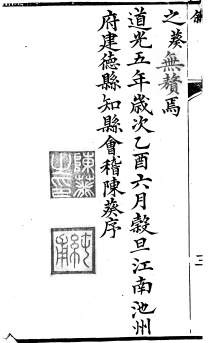 之葵無贅焉
道光五年歲次乙酉六月穀旦江南池州
府建德縣知縣會稽陳葵序
陳葵之印
純甫
三